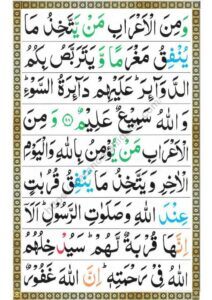 وَمِنَ الْاَعْرَابِ مَنْ يَّتَّخِذُ مَا
يُنْفِقُ مَغْرَمًا وَّ يَتَرَبَّصُ بِكُمُ
الدَّوَآئِرَ ؕ عَلَيْهِمْ دَآئِرَةُ السَّوْءِ ؕ
وَ اللّٰهُ سَمِيْعٌ عَلِيْمٌ ﴿۹۸﴾ وَ مِنَ
الْاَعْرَابِ مَنْ يُّؤْمِنُ بِاللّٰهِ وَالْيَوْمِ
الْاٰخِرِ وَ يَتَّخِذُ مَا يُنْفِقُ قُرُبٰتٍ
عِنْدَ اللّٰهِ وَ صَلَوٰتِ الرَّسُوْلِ ؕ اَلَاۤ
اِنَّهَا قُرْبَةٌ لَّهُمْ ؕ سَيُدْخِلُهُمُ
اللّٰهُ فِيْ رَحْمَتِهٖ ؕ اِنَّ اللّٰهَ غَفُوْرٌ